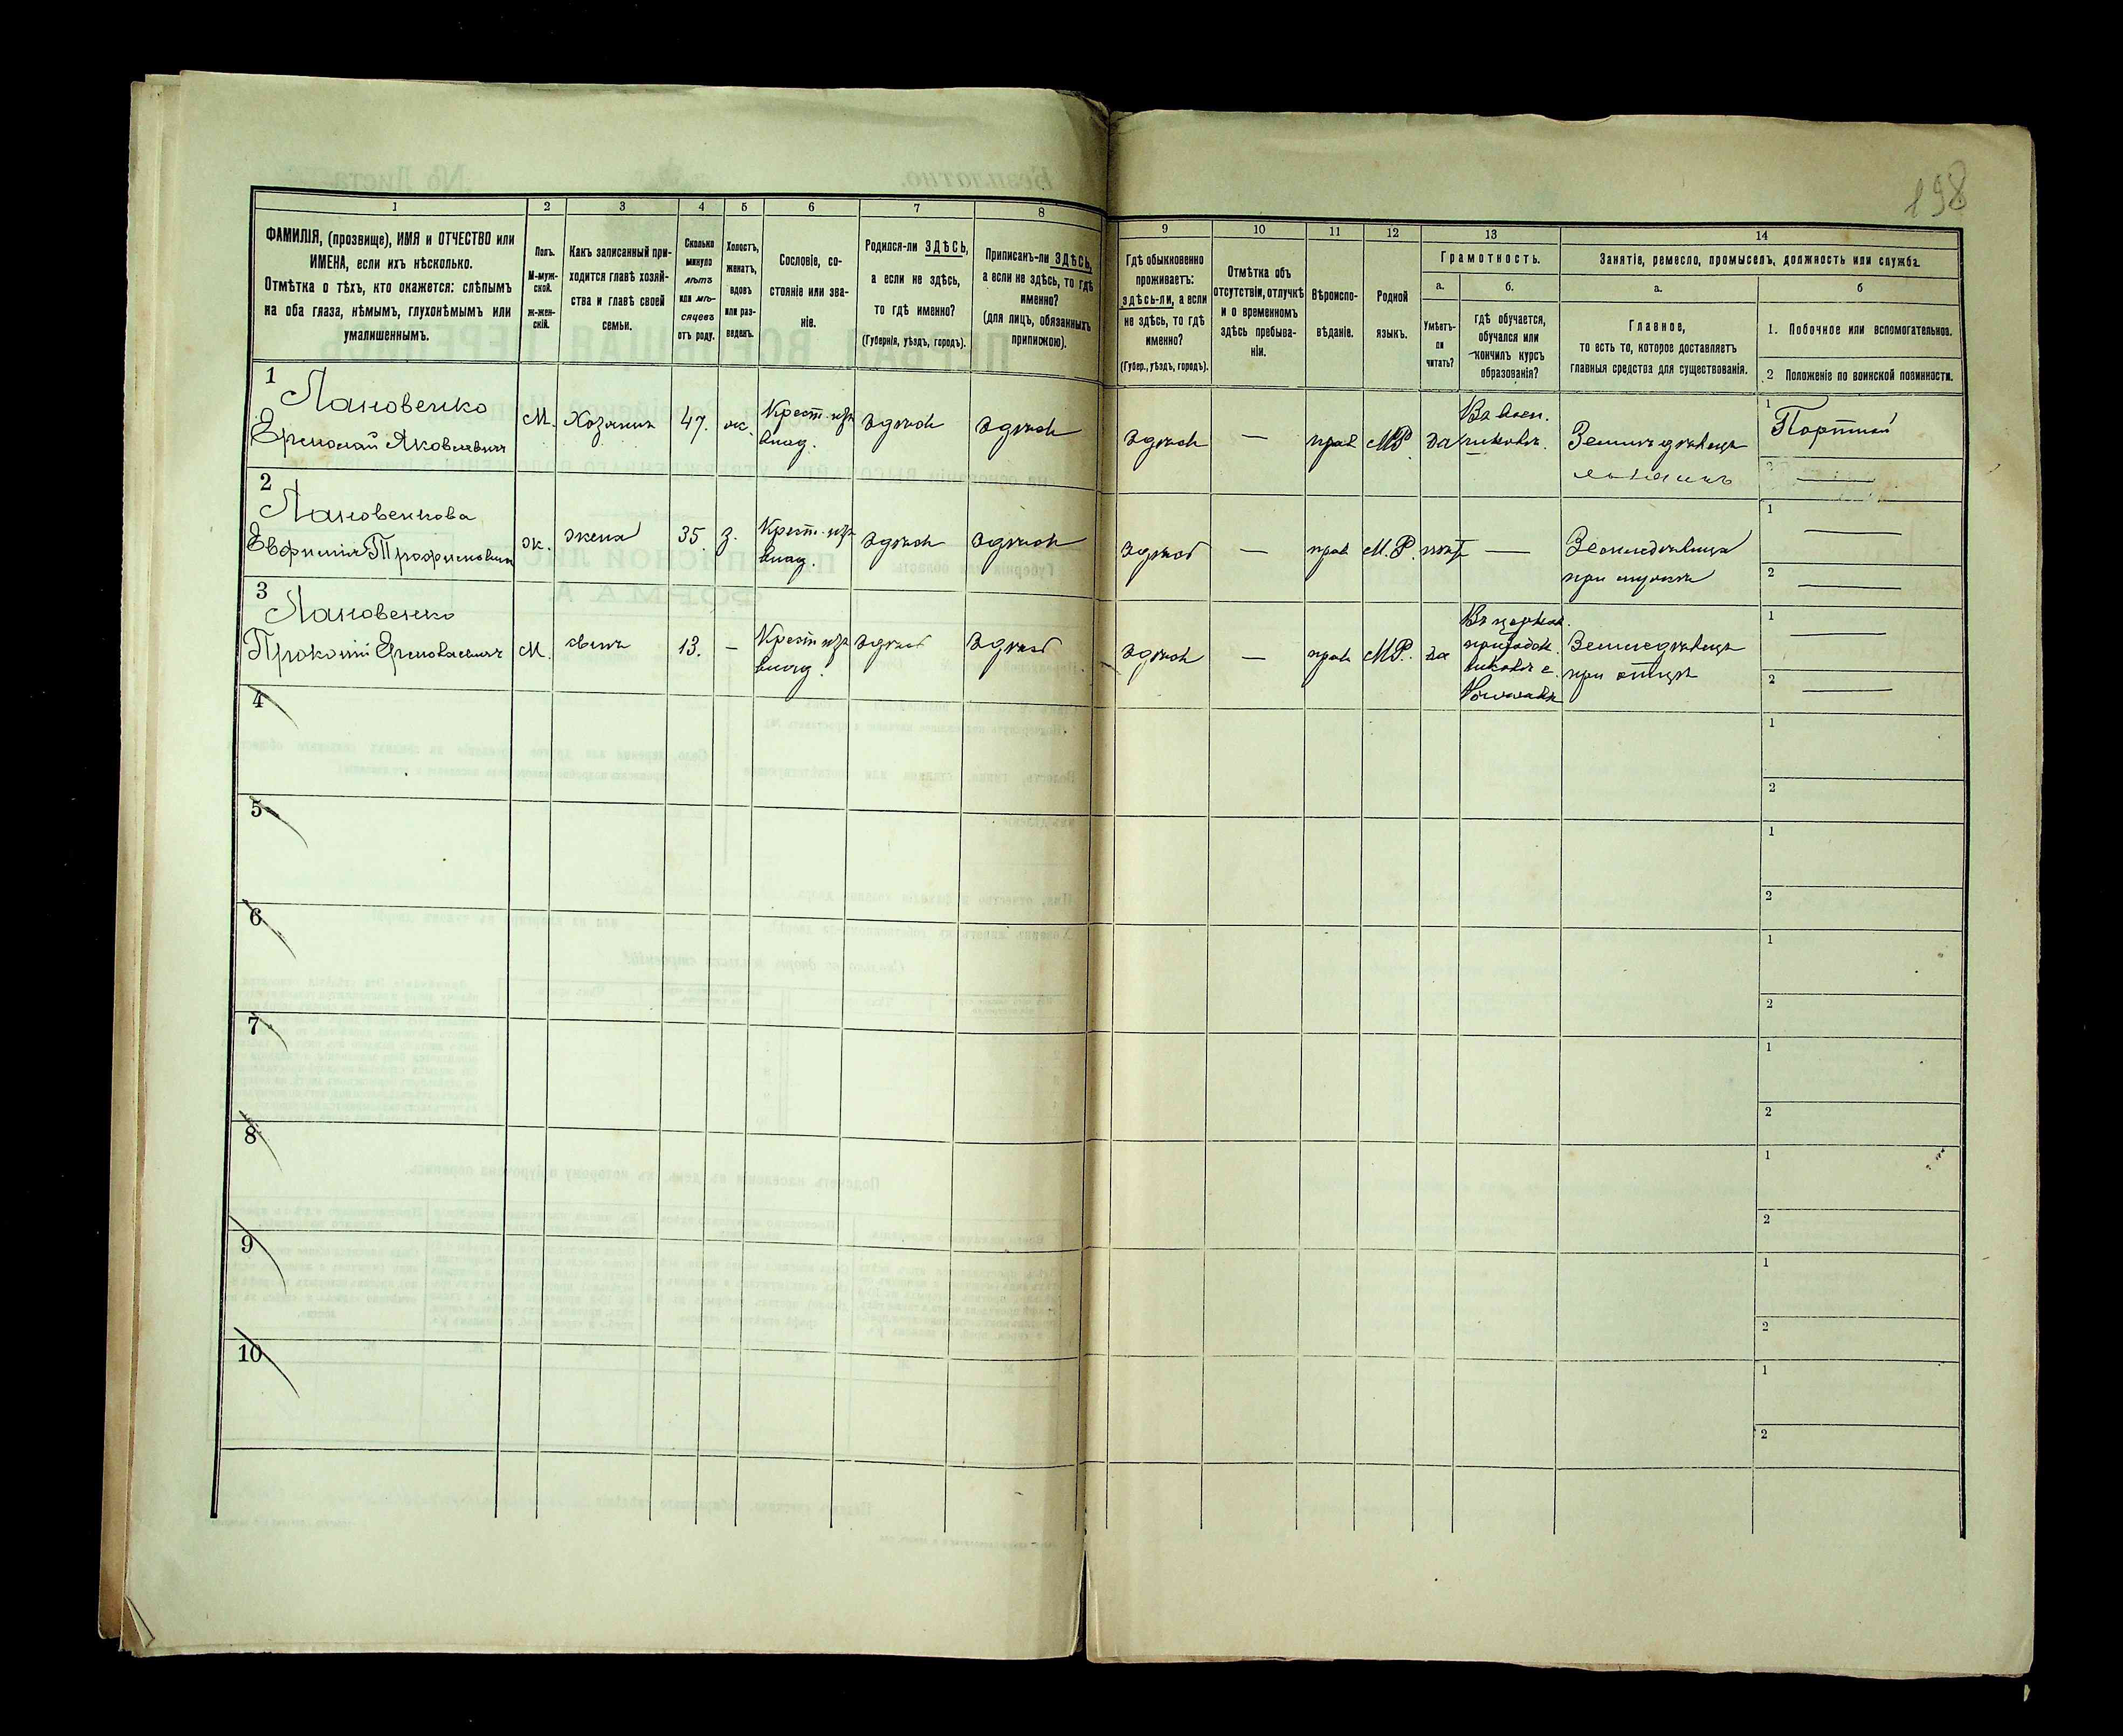 198
1
2
3
4
5
6
7
8
9
10
11
12
13
14
ФАМИЛІЯ, (прозвище), ИМЯ и ОТЧЕСТВО или
ИМЕНА, если ихъ нѣсколько.
Отмѣтка о тѣхъ, кто окажется: слѣпымъ
на оба глаза, нѣмымъ, глухонѣмымъ или
умалишеннымъ.
Полъ.
М-муж-
ской.
ж-жен-
скій.
Какъ записанный при-
ходится главѣ хозяй-
ства и главѣ своей
семьи.
Сколько
минуло
лѣтъ
или мѣ-
сяцевъ
отъ роду.
Холостъ,
женатъ,
вдовъ
или раз-
веденъ.
Сословіе, со-
стояніе или зва-
ніе.
Родился-ли ЗДѢСЬ,
а если не здѣсь,
то гдѣ именно?
(Губернія, уѣздъ, городъ).
Приписанъ-ли ЗДѢСЬ,
а если не здѣсь, то гдѣ
именно?
(для лицъ, обязанныхъ
припискою).
Гдѣ обыкновенно
проживаетъ:
здѣсь-ли, а если
не здѣсь, то гдѣ
именно?
(Губер., уѣздъ, городъ).
Отмѣтка объ
отсутствіи, отлучкѣ
и о временномъ
здѣсь пребыва-
ніи.
Вѣроиспо-
вѣданіе.
Родной
языкъ.
Грамотность.
а.
б.
Умѣетъ-
ли
читать?
гдѣ обучается,
обучался или
кончилъ курсъ
образованія?
Занятіе, ремесло, промыселъ, должность или служба.
а.
б
Главное,
то есть то, которое доставляетъ
главныя средства для существованія.
1. Побочное или вспомогательное.
2 Положеніе по воинской повинности.
1
Лановенко
Ермолай Яковлевичъ
М.
Хозяинъ
47.
ж.
Крест. изъ
влад.
здѣсь
здѣсь
здѣсь
—
прав
М.Р.
да
Земледѣлецъ
1
Портной
2
—
2
Лановенкова
Евфимія Трофимовна
ж.
жена
35.
з.
Крест. изъ
влад.
здѣсь
здѣсь
здѣсь
—
прав
М.Р.
нѣтъ
—
Земледѣлица
при мужѣ
1
—
2
—
3
Лановенко
Прокопій Ермолаевичъ
М.
сынъ
13.
—
Крест изъ
влад.
здѣсь
здѣсь
здѣсь
—
прав
М.Р.
да
Земледѣлецъ
при отцѣ
1
—
2
—
4
1
2
5
1
2
6
1
2
7
1
2
8
1
2
9
1
2
10
1
2